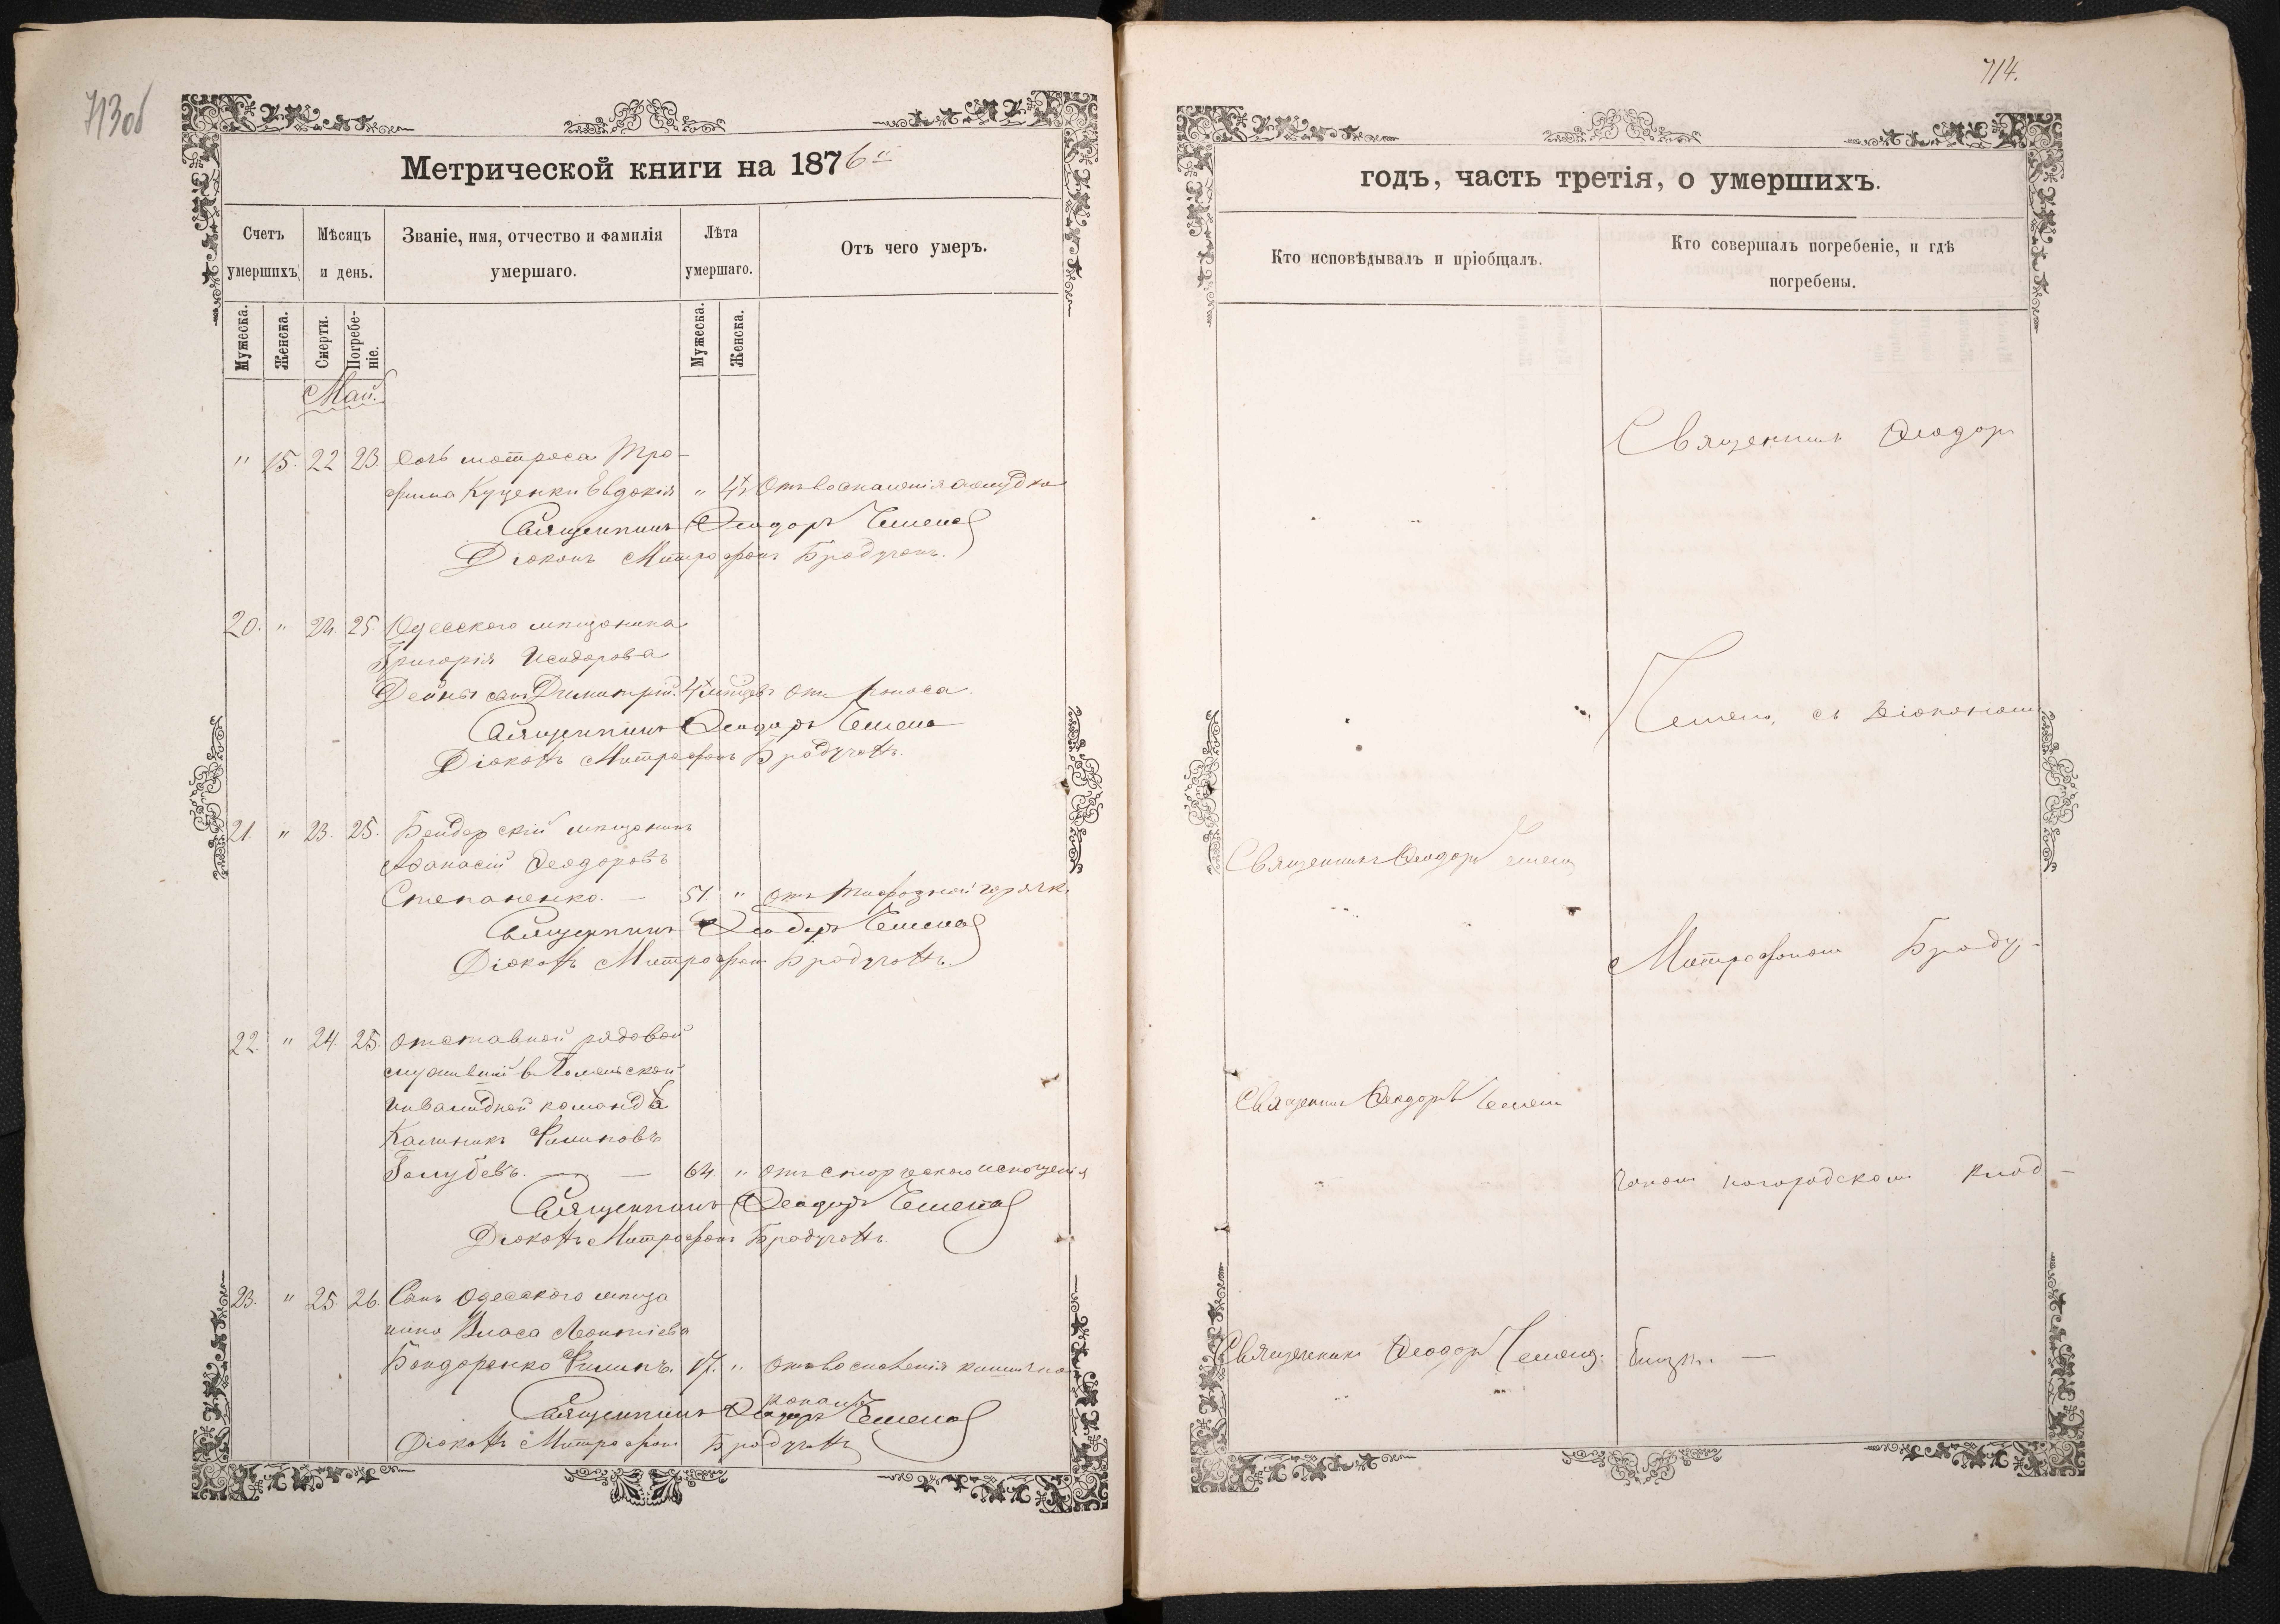 713об
Метрической книги на 1876й
Счетъ умершихъ
Мѣсяцъ и день.
Званіе, имя, отчество и фамилія умершаго.
Лѣта умершаго.
Отъ чего умеръ.
Мужеска.
Женска.
Смерти.
Погребе-
ніе.
Мужеска.
Женска.
Май.
" 15. 22 23. Дочь матроса Тро-
фима Куценки Евдокія "
Священникъ Феодоръ
Діаконъ Митрофанъ Брадучанъ.
20. " 24. 25. Одесского мѣщанина
Григорія Исидорова
сынъ Димитрій.
Священникъ Феодоръ
Діаконъ Митрофанъ Брадучанъ.
21. " 23. 25. Бендерскій мѣщанинъ
Афанасій Феодоровъ
Степаненко. — 51 " Отъ тифозной горячк.
Священникъ Феодоръ
Діаконъ Митрофанъ Брадучанъ.
22. " 24. 25. Отставной рядовой
служившій в
инвалидной командѣ
Калиникъ Филиповъ
Голубевъ. — — 64 " Отъ старческаго истощенія
Священникъ Феодоръ
Діаконъ Митрофанъ Брадучанъ.
23. " 25. 26. Сынъ Одесского мѣща
нина Власа Леонтіева
Бондаренко Филипъ. 17. "
Священникъ Феодоръ
Діаконъ Митрофанъ Брадучанъ
714.
годъ, часть третія, о умершихъ.
Кто исповѣдывалъ и пріобщалъ.
Кто совершалъ погребеніе, и гдѣ
погребены.
Священникъ Феодоръ
съ Діакономъ
Священникъ Феодоръ
Митрофаномъ Браду-
Священникъ Феодоръ
чаномъ на городскомъ клад-
Священникъ Феодоръ
бищѣ. —